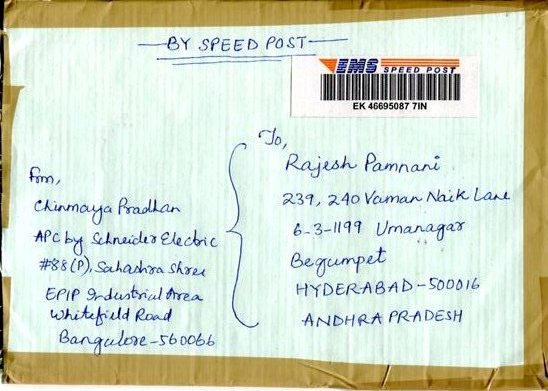 BY SPEED POST
EMS SPEED POST
EK 46695087 7IN
To,
Rajesh Pamnani
239, 240 Vaman Naik Lane
6-3-1199 Umanagar
Begumpet
HYDERABAD-500016
ANDHRA PRADESH
From,
Chinmaya Pradhan
APC by Schneider Electric
#88(P), Sahashra Shree
EPIP Industrial Area
Whitefield Road
Bangalore-560066